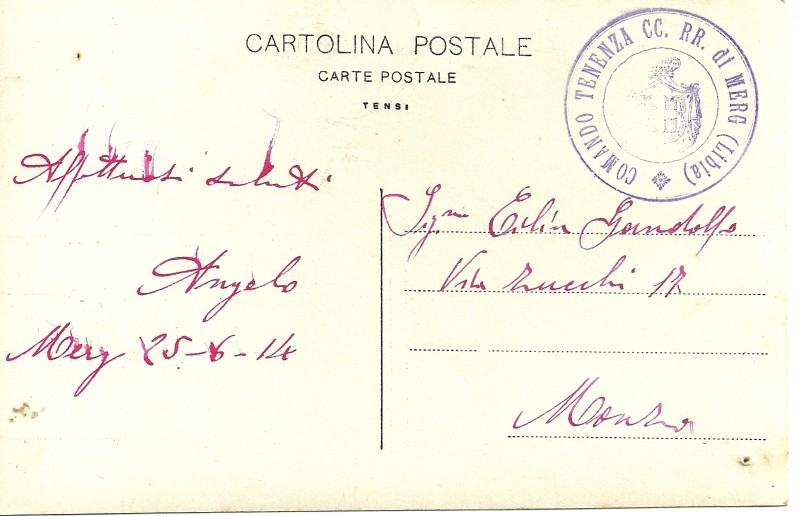 CARTOLINA POSTALE
CARTE POSTALE
TENSI
COMANDO TENENZA CC. RR. di MERG (Libia)
Affettuosi saluti
Angelo
Merg 25-6-14
Gandolfo
Via Zucchi 17
Monza